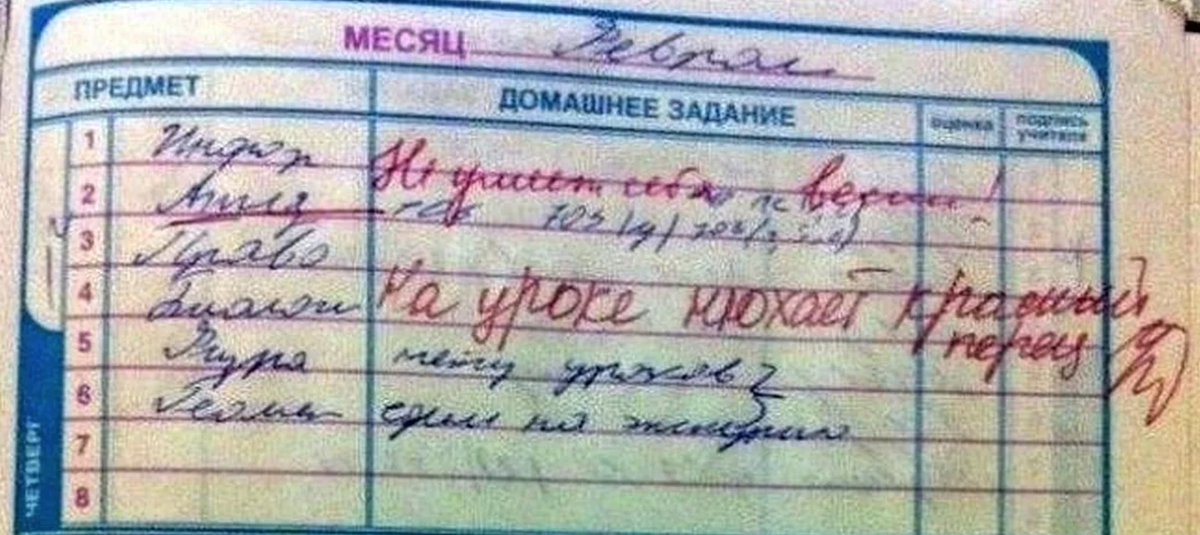 МЕСЯЦ Феврал
ПРЕДМЕТ ДОМАШНЕЕ ЗАДАНИЕ оценка подпись учителя
1 Инфор Не умеет себя вести!
2 Англ 703
3 Право
4 Биологи На уроке нюхает красный перец
5 Физра нету уроков
6 Геомет едем на
7
8
ЧЕТВЕРГ